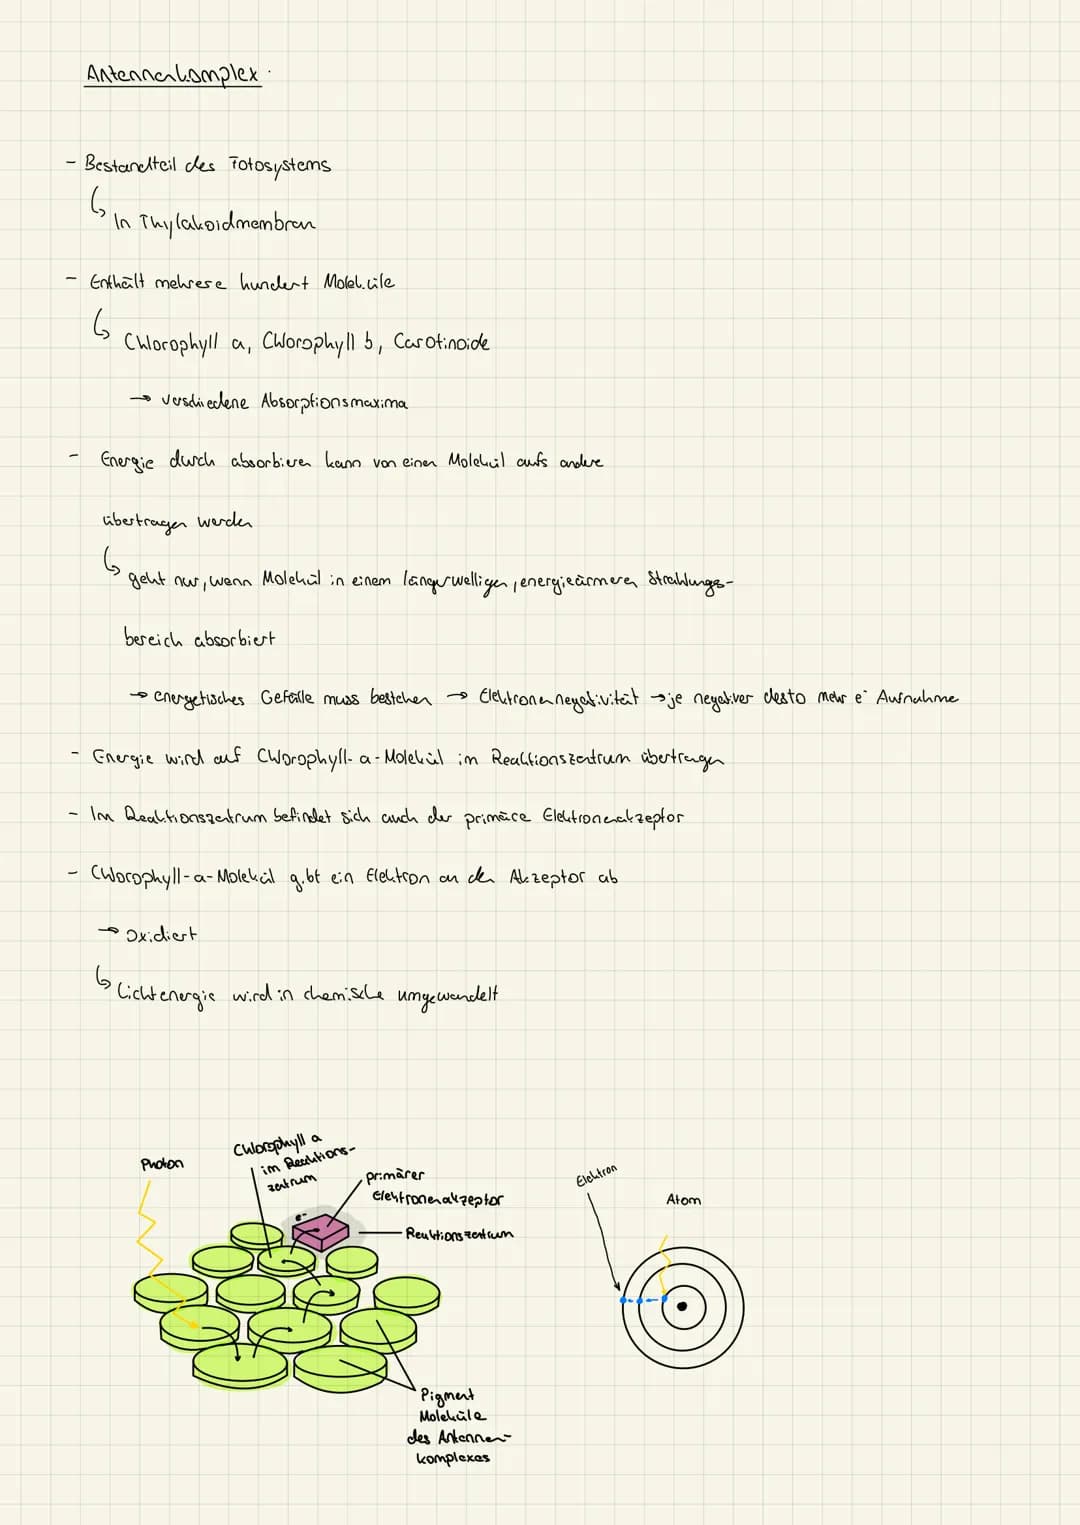 Antennenkomplex
- Bestandteil des Fotosystems
In Thylakoidmembran
- Enthält mehrere hundert Moleküle
Chlorophyll a, Chlorophyll b, Carotinoide
→ verschiedene Absorptionsmaxima
- Energie durch absorbieren kann von einen Molekül aufs andere
übertragen werden
geht nur, wenn Molekül in einem längerwelligen, energieärmeren Strahlungs-
bereich absorbiert
→ energetisches Gefälle muss bestehen → Elektronennegativität → je negativer desto mehr e⁻ Aufnahme
- Energie wird auf Chlorophyll-a-Molekül im Reaktionszentrum übertragen
- Im Reaktionszentrum befindet sich auch der primäre Elektronenakzeptor
- Chlorophyll-a-Molekül gibt ein Elektron an den Akzeptor ab
→ Oxidiert
Lichtenergie wird in chemische umgewandelt
Photon
Chlorophyll a
im Reaktions-
zentrum
primärer
Elektronenakzeptor
e⁻
Reaktionszentrum
Pigment
Moleküle
des Antennen-
komplexes
Elektron
Atom